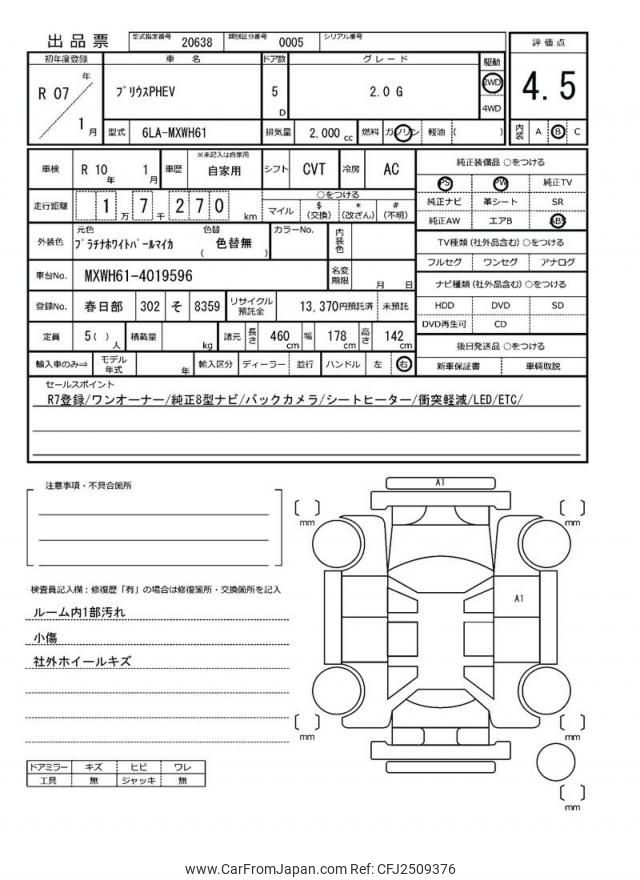 出品票 型式指定番号 20638 類別区分番号 0005 シリアル番号
初年度登録 車名 ドア数 グレード 駆動 評価点
R 07 年 1 月 プリウスPHEV 5 D 2.0 G 2WD 4WD 4.5
型式 6LA-MXWH61 排気量 2,000 cc 燃料 ガソリン 軽油 ( ) 内装 A B C
車検 R 10 年 1 月 車歴 ※未記入は自家用 自家用 シフト CVT 冷房 AC
純正装備品 ○をつける
PS PW 純正TV
走行距離 1 万 7 千 2 7 0 km ○をつける
マイル $ (交換) * (改ざん) # (不明)
純正ナビ 革シート SR
純正AW エアB ABS
外装色 元色 プラチナホワイトパールマイカ 色替 ( 色替無 ) カラーNo. 内装色
TV種類 (社外品含む) ○をつける
フルセグ ワンセグ アナログ
車台No. MXWH61-4019596 名変期限 月 日
ナビ種類 (社外品含む) ○をつける
登録No. 春日部 302 そ 8359 リサイクル預託金 13,370円預託済 未預託
HDD DVD SD
DVD再生可 CD
定員 5 ( ) 人 積載量 kg 諸元 長さ 460 cm 幅 178 cm 高さ 142 cm
後日発送品 ○をつける
輸入車のみ⇒ モデル年式 年 輸入区分 ディーラー 並行 ハンドル 左 右
新車保証書 車輌取説
セールスポイント
R7登録/ワンオーナー/純正8型ナビ/バックカメラ/シートヒーター/衝突軽減/LED/ETC/
注意事項・不具合箇所
A1
mm
mm
検査員記入欄：修復歴「有」の場合は修復箇所・交換箇所を記入
A1
ルーム内1部汚れ
小傷
社外ホイールキズ
mm
mm
ドアミラー キズ ヒビ ワレ
工具 無 ジャッキ 無
mm
www.CarFromJapan.com Ref: CFJ2509376